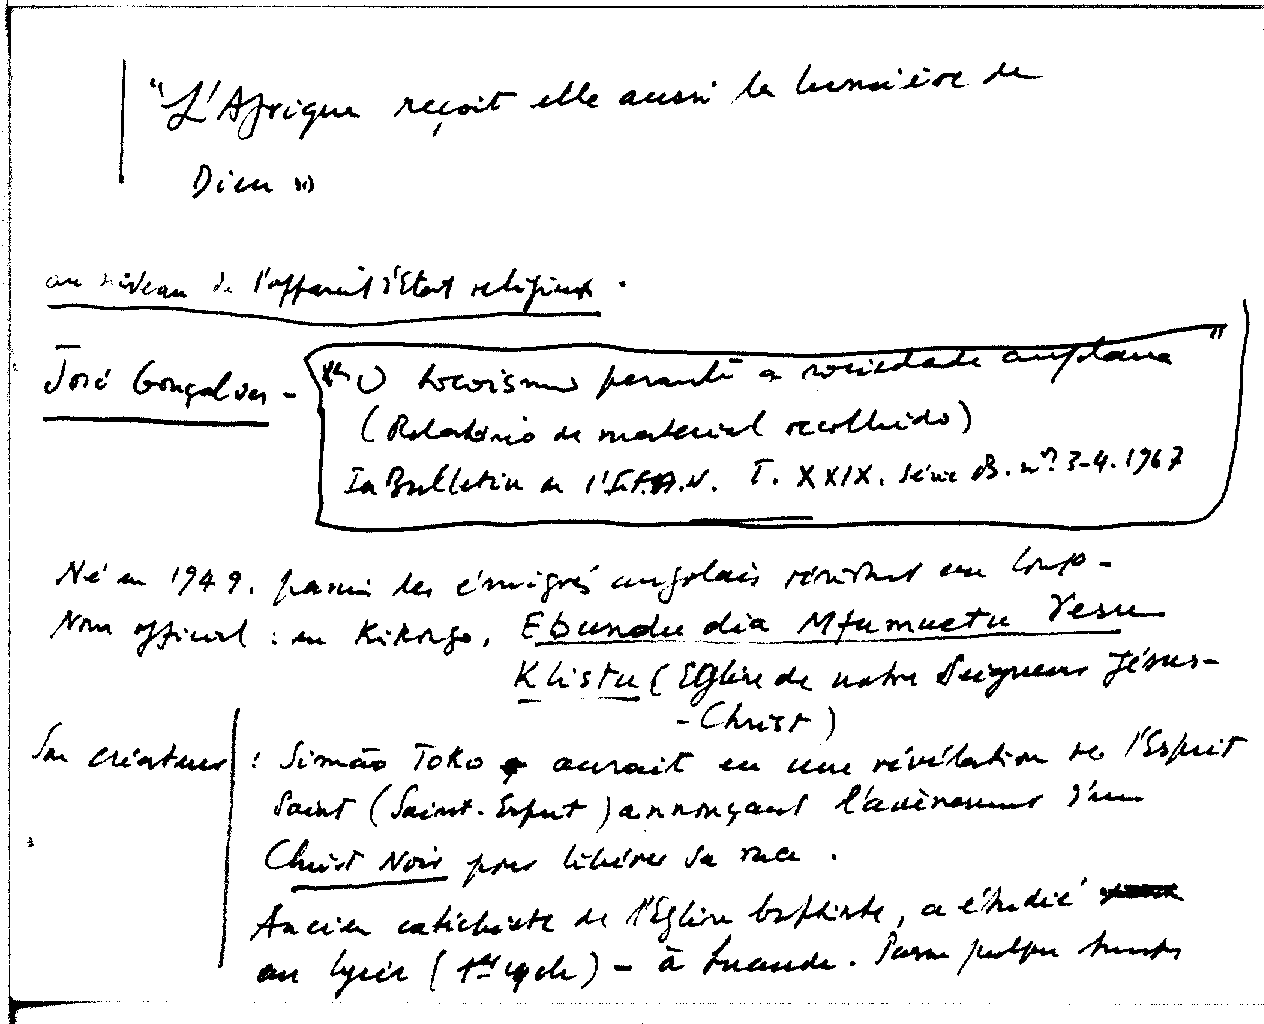 "L'Afrique reçoit elle aussi la lumière de
Dieu »
au niveau de l'appareil d'Etat religieux.
José Gonçalves - "O tocoismo perante a sociedade angolana"
(Relatório de material recolhido)
In Bulletin de l'I.F.A.N. T. XXIX. série B. n° 3-4. 1967
Né en 1949. parmi les émigrés angolais résidant au Congo -
Nom officiel : en Kikongo, Ebundu dia Mfumuetu Yesu
Klistu (Eglise de notre Seigneur Jésus-
-Christ)
Son créateur : Simão Toko aurait eu une révélation de l'Esprit
Saint (Saint-Esprit) annonçant l'avènement d'un
Christ Noir pour libérer sa race.
Ancien catéchiste de l'Eglise baptiste, a étudié
au lycée (1er cycle) - à Luanda. Passe quelque temps